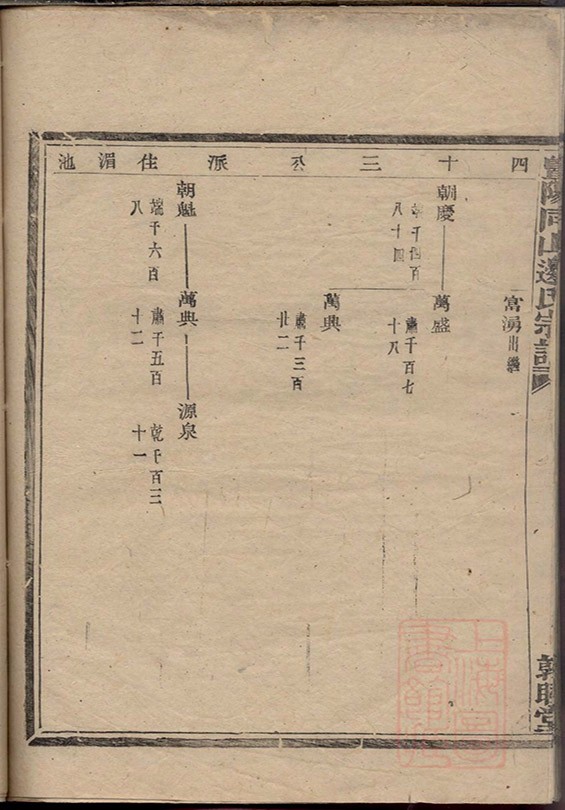 暨陽同山邊氏宗譜
四十三公派住湄池
富湧出繼
朝慶
千四百
八十四
萬盛
肅千百七
十八
萬興
肅千三百
廿二
朝魁
端千六百
八
萬典
肅千五百
十二
源泉
乾千百三
十一